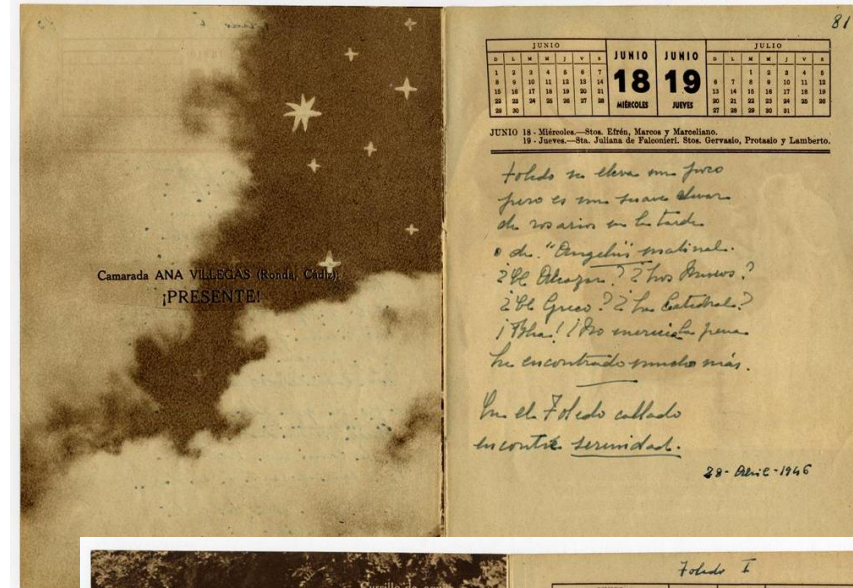 Camarada ANA VILLEGAS (Ronda, Cádiz).
¡PRESENTE!
81
JUNIO
D L M M J V S
1 2 3 4 5 6 7
8 9 10 11 12 13 14
15 16 17 18 19 20 21
22 23 24 25 26 27 28
29 30
JUNIO
18
MIÉRCOLES
JUNIO
19
JUEVES
JULIO
D L M M J V S
1 2 3 4 5
6 7 8 9 10 11 12
13 14 15 16 17 18 19
20 21 22 23 24 25 26
27 28 29 30 31
JUNIO 18 - Miércoles.—Stos. Efrén, Marcos y Marceliano.
19 - Jueves.—Sta. Juliana de Falconieri. Stos. Gervasio, Protasio y Lamberto.
Toledo se eleva un poco
pero es un suave
de rosarios en la tarde
o de "Angelus" matinal.
¿El Alcázar? ¿Los Museos?
¿El Greco? ¿La Catedral?
¡Bha! ¡No merecía la pena
he encontrado mucho más.
En el Toledo callado
encontré serenidad.
28-Abril-1946
Cursillo de
Toledo I